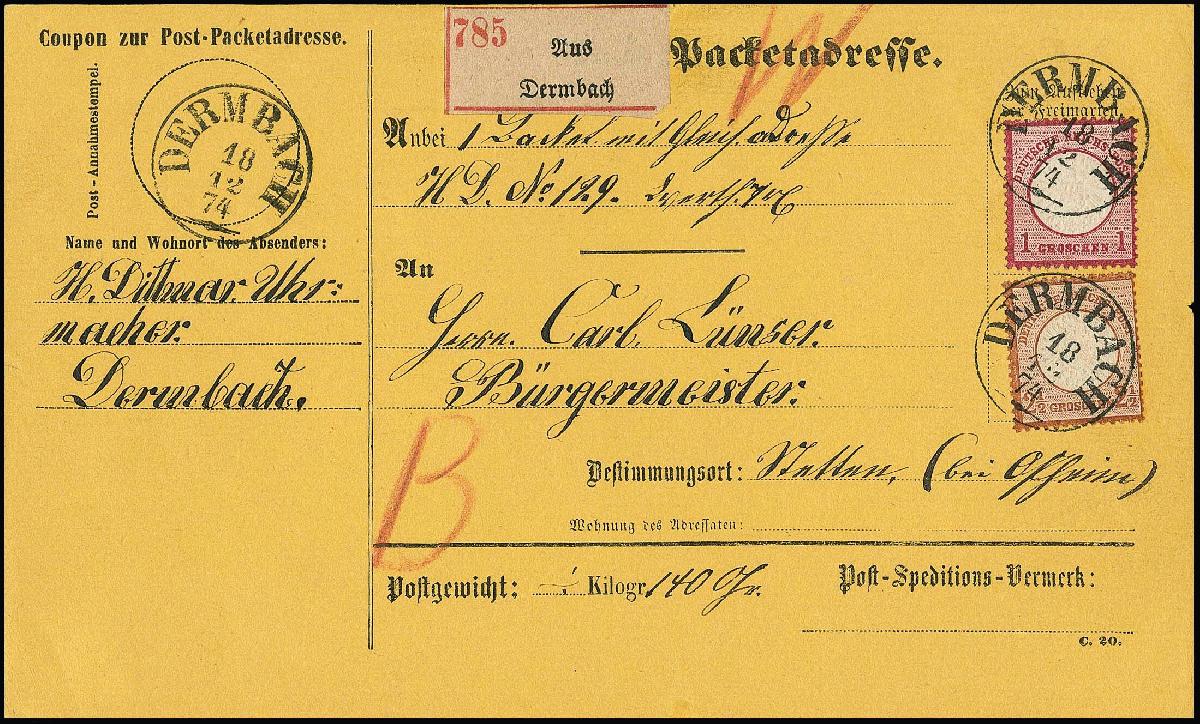 Coupon zur Post-Packetadresse.
Post-Annahmestempel.
DERMBACH
18
12
74
Name und Wohnort des Absenders:
H. Dittmar. Uhr:
macher.
Dermbach.
785
Aus
Dermbach
Packetadresse.
Freimarken.
DERMBACH
18
12
74
1 GROSCHEN 1
Anbei 1 Packet mit Gleich. adresse
H D. No 129.
An
Herrn. Carl. Lünser.
Bürgermeister.
DERMBACH
18
74
1/2 GROSCHEN 1/2
Bestimmungsort: Stetten, (bei
Wohnung des Adressaten:
B
Postgewicht: Kilogr. 140 Gr.
Post-Speditions-Vermerk:
C. 20.